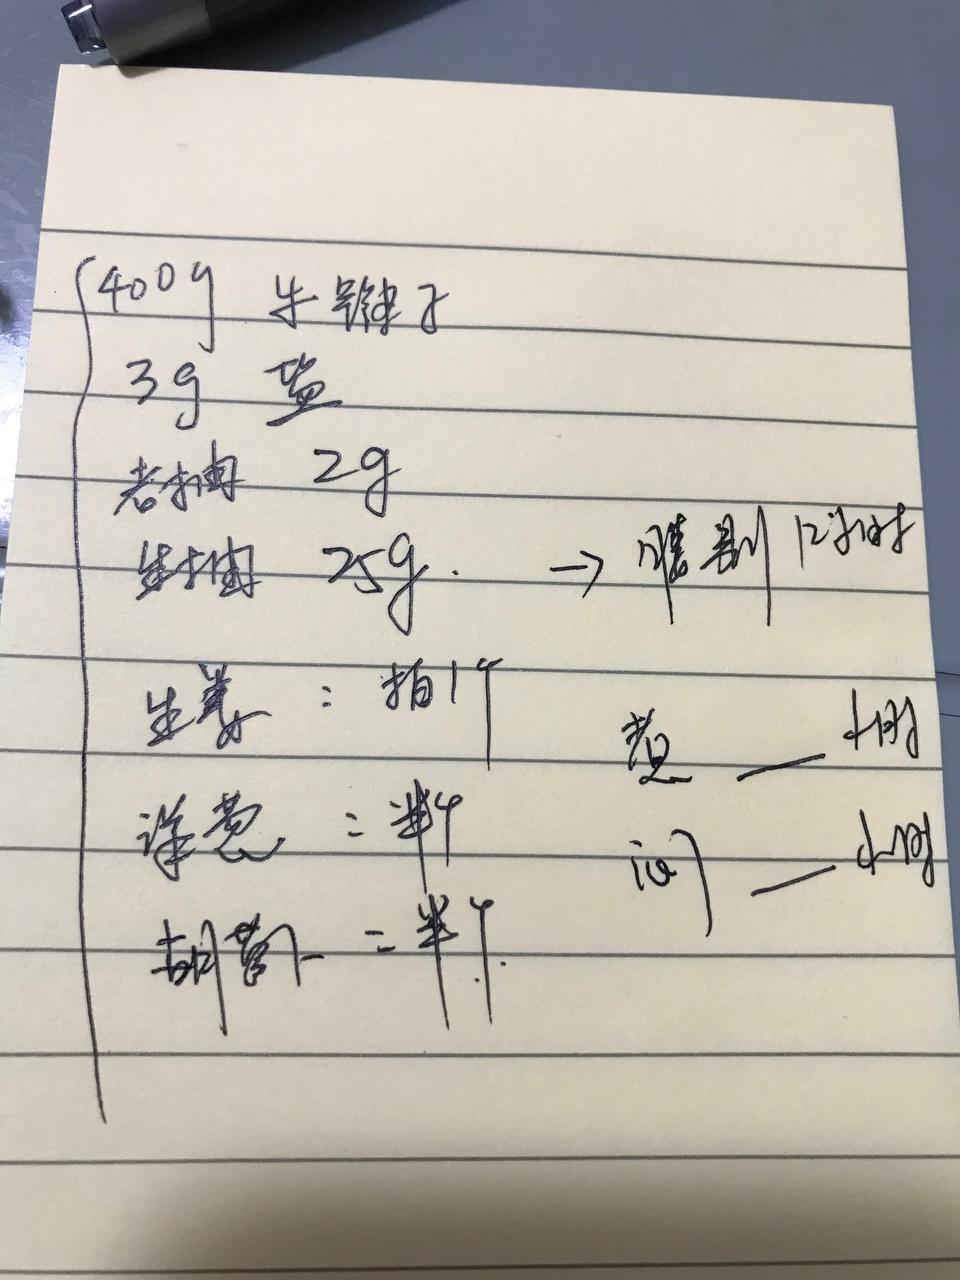 400g 牛腱子
3g 盐
老抽 2g
生抽 25g. → 腌制 12小时
生姜：拍1个
洋葱：半个
胡萝卜：半个.
煮 — 小时
闷 — 小时